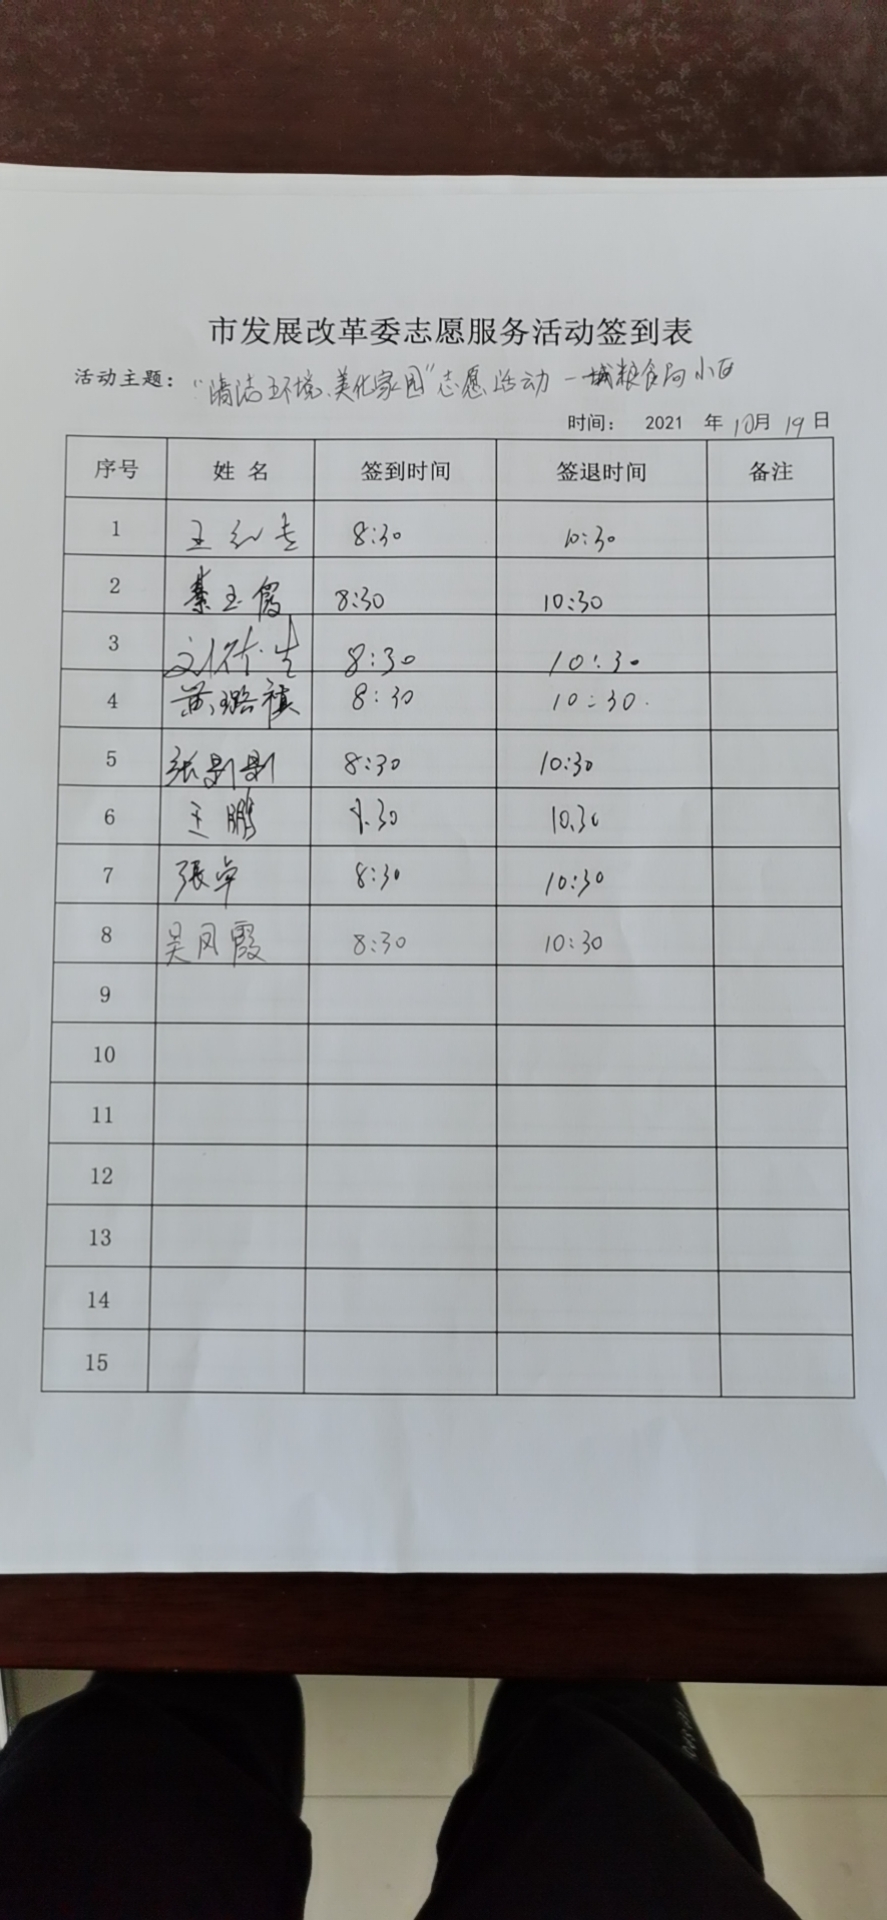 市发展改革委志愿服务活动签到表
活动主题："清洁环境、美化家园"志愿活动—粮食局小区
时间： 2021 年 10月 19日
序号 姓 名 签到时间 签退时间 备注
1 王 8:30 10:30
2 秦玉霞 8:30 10:30
3 8:30 10:30
4 黄璐禛 8:30 10:30
5 张 8:30 10:30
6 王鹏 8.30 10.30
7 張卓 8:30 10:30
8 吴凤霞 8:30 10:30
9
10
11
12
13
14
15